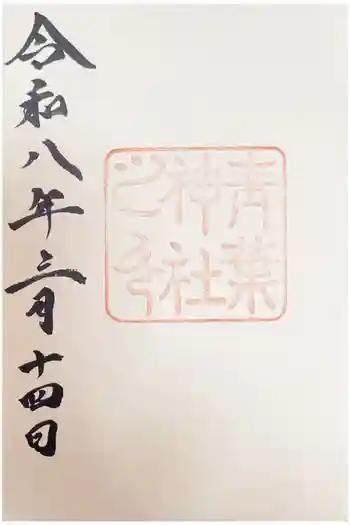 青葉
神社
之印
令和八年三月十四日